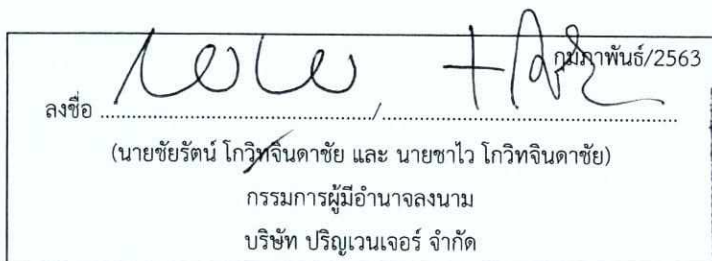 กุมภาพันธ์/2563
ลงชื่อ ........................................../..............................................
(นายชัยรัตน์ โกวิทจินดาชัย และ นายชาไว โกวิทจินดาชัย)
กรรมการผู้มีอำนาจลงนาม
บริษัท ปริญเวนเจอร์ จำกัด